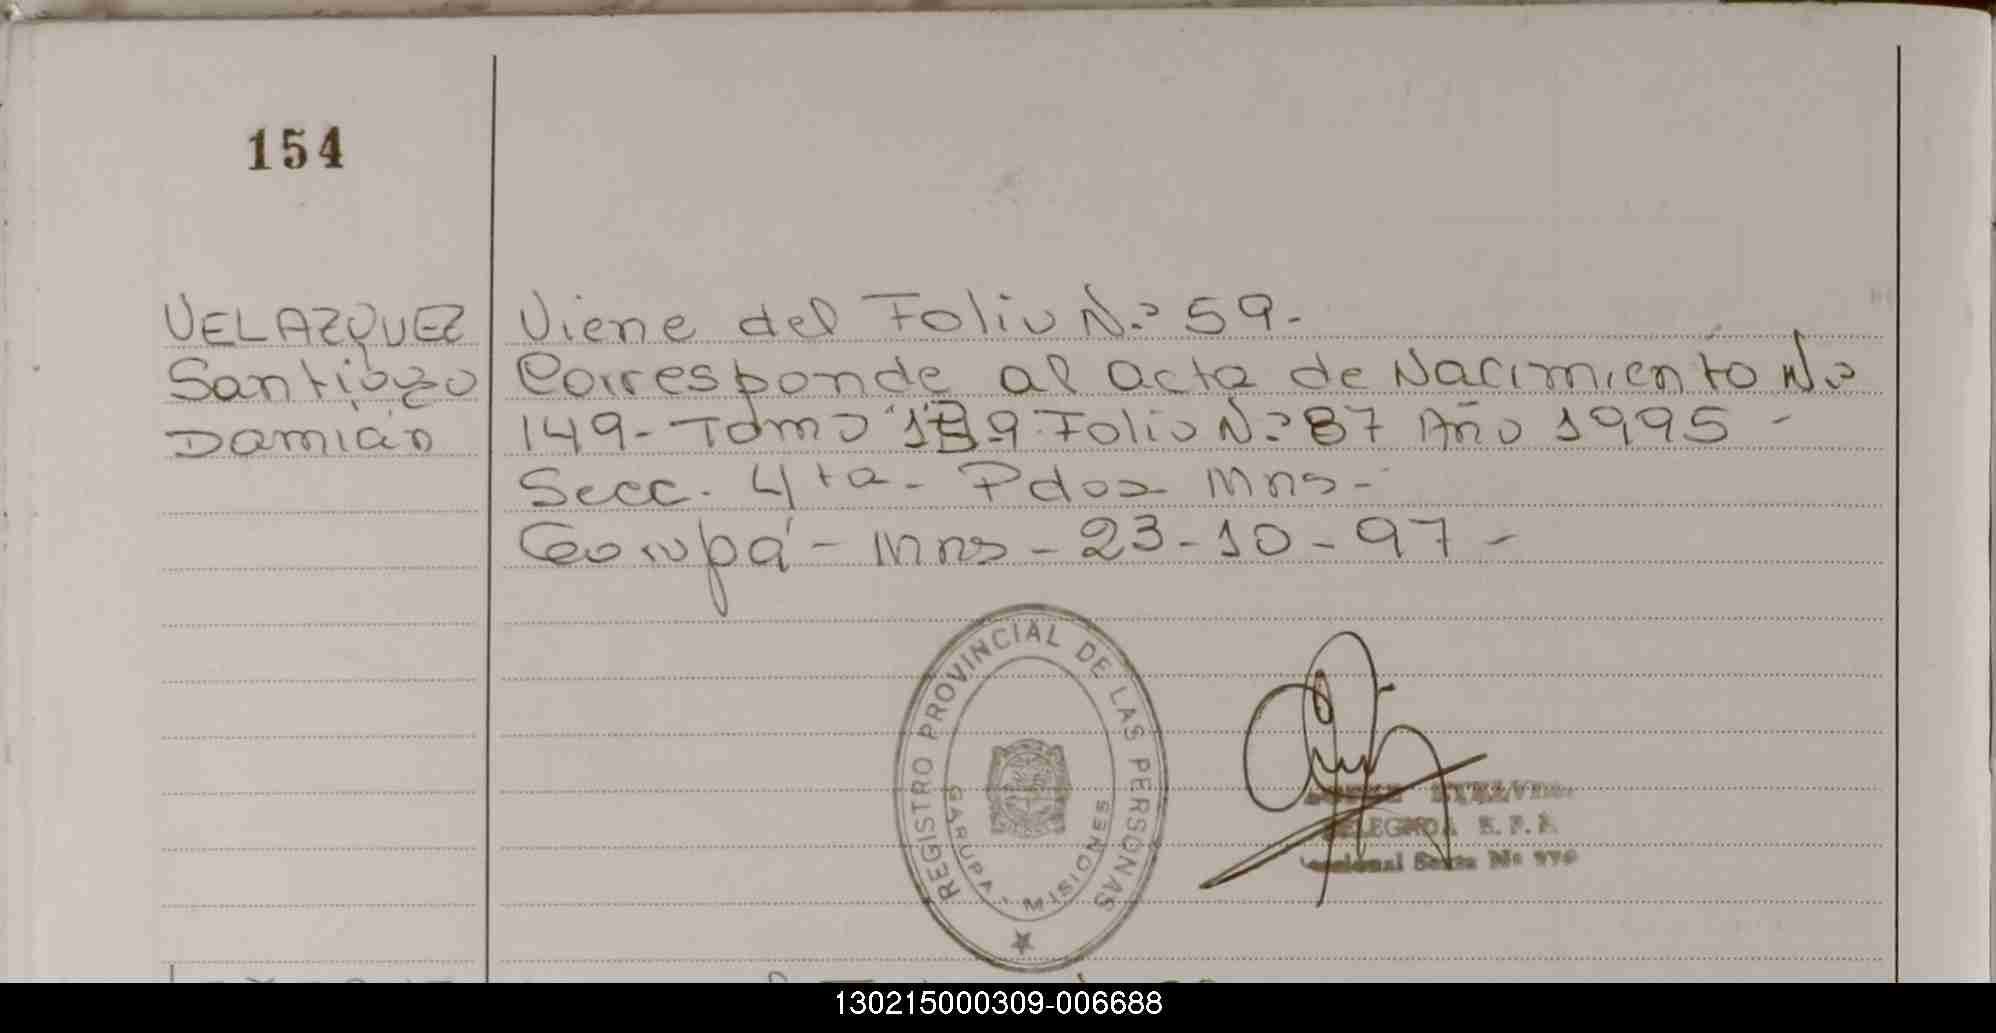 154
VELAZQUEZ
Santiago
Damián
Viene del Folio N.º 59.-
Corresponde al acta de Nacimiento N.º
149 - Tomo 9 - Folio N.º 87 Año 1995 -
Secc. 4ta - Pdas Mns -
Garupá - Mns - 23-10-97 -
REGISTRO PROVINCIAL DE LAS PERSONAS
GARUPA - MISIONES
130215000309-006688